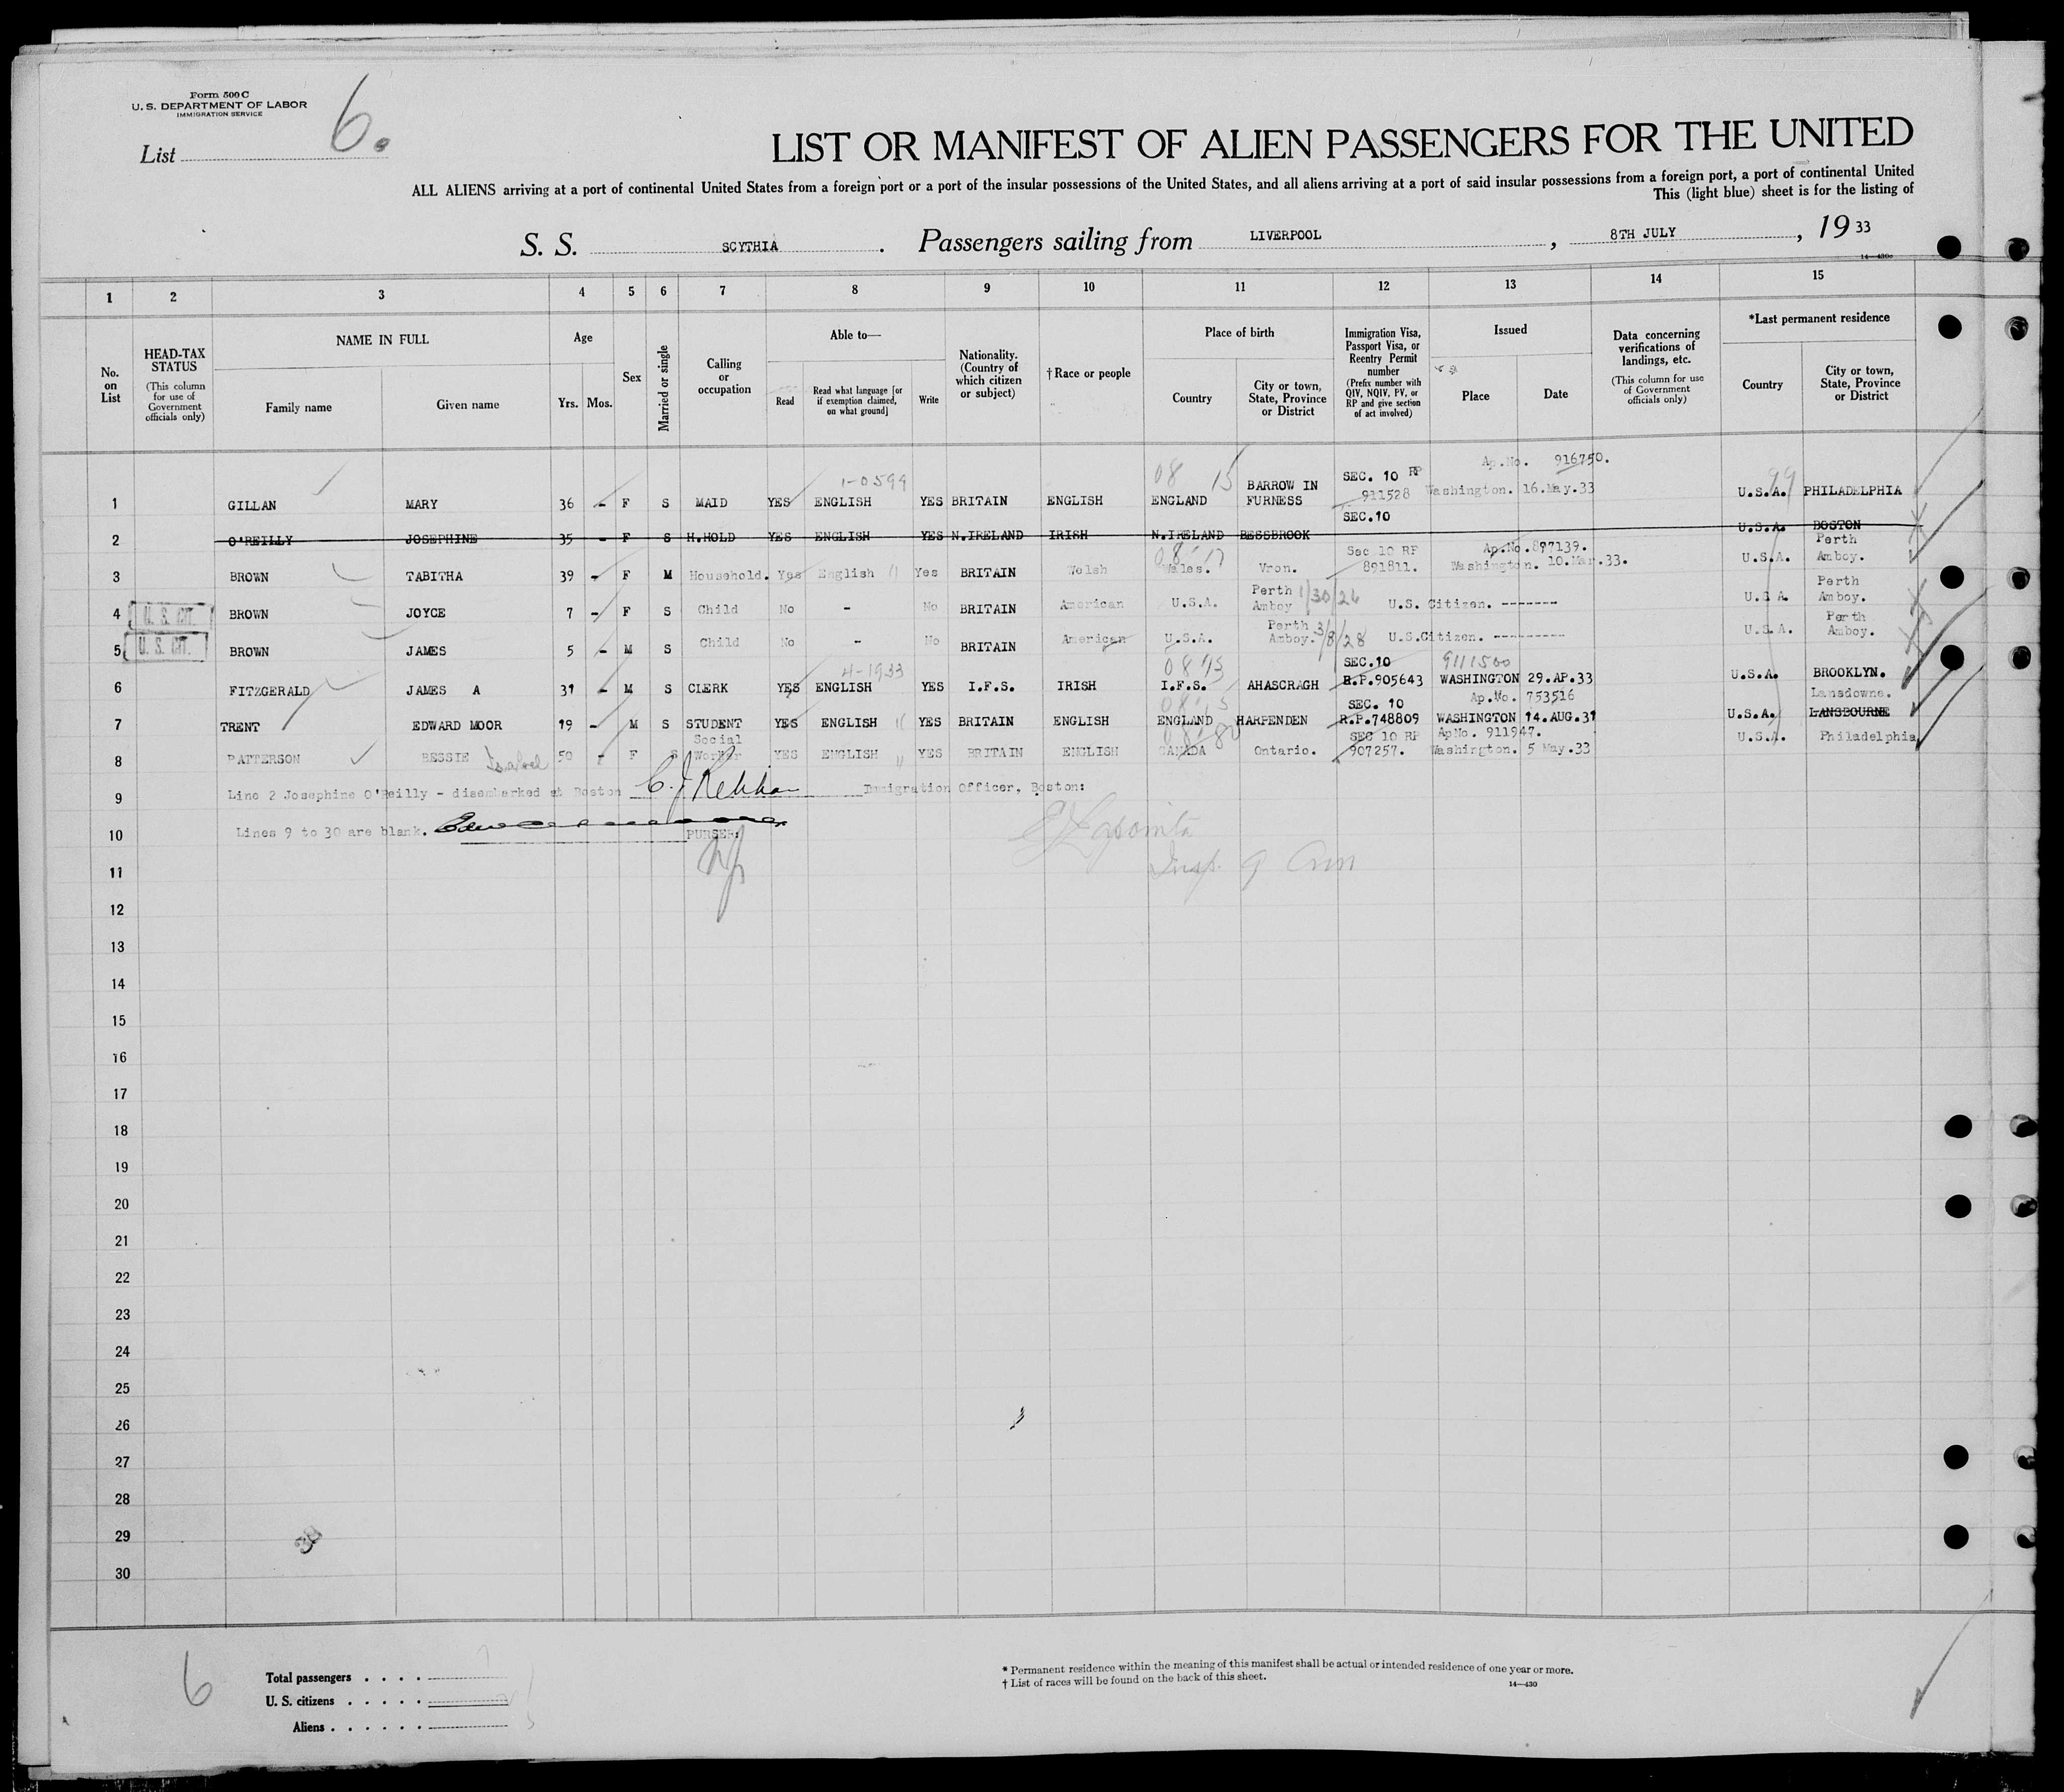 Form 500 C
U. S. DEPARTMENT OF LABOR
IMMIGRATION SERVICE
List 6.
LIST OR MANIFEST OF ALIEN PASSENGERS FOR THE UNITED
ALL ALIENS arriving at a port of continental United States from a foreign port or a port of the insular possessions of the United States, and all aliens arriving at a port of said insular possessions from a foreign port, a port of continental United
This (light blue) sheet is for the listing of
S. S. SCYTHIA. Passengers sailing from LIVERPOOL, 8TH JULY, 19 33
14—430c
1 2 3 4 5 6 7 8 9 10 11 12 13 14 15
No. on List
HEAD-TAX STATUS
(This column for use of Government officials only)
NAME IN FULL
Family name
Given name
Age
Yrs. Mos.
Sex
Married or single
Calling or occupation
Able to—
Read
Read what language [or if exemption claimed, on what ground]
Write
Nationality. (Country of which citizen or subject)
†Race or people
Place of birth
Country
City or town, State, Province or District
Immigration Visa, Passport Visa, or Reentry Permit number
(Prefix number with QIV, NQIV, PV, or RP and give section of act involved)
Issued
Place
Date
Data concerning verifications of landings, etc.
(This column for use of Government officials only)
*Last permanent residence
Country
City or town, State, Province or District
Ap.No. 916750.
1-0599 08 15 SEC. 10 RP 99
1 GILLAN MARY 36 - F S MAID YES ENGLISH YES BRITAIN ENGLISH ENGLAND BARROW IN FURNESS 911528 Washington. 16.May.33 U.S.A. PHILADELPHIA
SEC.10
2 O'REILLY JOSEPHINE 35 - F S H.HOLD YES ENGLISH YES N.IRELAND IRISH N.IRELAND BESSBROOK U.S.A. BOSTON
08 17 Sec 10 RP Ap.No.897139.
3 BROWN TABITHA 39 - F M Household. Yes English Yes BRITAIN Welsh Wales. Vron. 891811. Washington. 10.Mar.33. U.S.A. Perth Amboy.
4 U. S. CIT. BROWN JOYCE 7 - F S Child No - No BRITAIN American U.S.A. Perth Amboy 1/30/26 U.S. Citizen. ------- U.S.A. Perth Amboy.
5 U. S. CIT. BROWN JAMES 5 - M S Child No - No BRITAIN American U.S.A. Perth Amboy. 3/8/28 U.S.Citizen. --------- U.S.A. Perth Amboy.
4-1933 08 15 SEC.10 9111500
6 FITZGERALD JAMES A 31 - M S CLERK YES ENGLISH YES I.F.S. IRISH I.F.S. AHASCRAGH R.P.905643 WASHINGTON 29.AP.33 U.S.A. BROOKLYN.
08 15 SEC. 10 Ap.No. 753516 Lansdowne.
7 TRENT EDWARD MOOR 19 - M S STUDENT YES ENGLISH YES BRITAIN ENGLISH ENGLAND HARPENDEN R.P.748809 WASHINGTON 14.AUG.31 U.S.A. LANSBOURNE
08 80 SEC 10 RP ApNo. 911947.
8 PATTERSON BESSIE Isabel 50 - F S Social Worker YES ENGLISH YES BRITAIN ENGLISH CANADA Ontario. 907257. Washington. 5 May.33 U.S.A. Philadelphia
9 Line 2 Josephine O'Reilly - disembarked at Boston Immigration Officer, Boston:
10 Lines 9 to 30 are blank. PURSER.
11 Insp.
12
13
14
15
16
17
18
19
20
21
22
23
24
25
26
27
28
29
30
6
Total passengers . . . .
U. S. citizens . . . . .
Aliens . . . . . .
* Permanent residence within the meaning of this manifest shall be actual or intended residence of one year or more.
† List of races will be found on the back of this sheet.
14—430